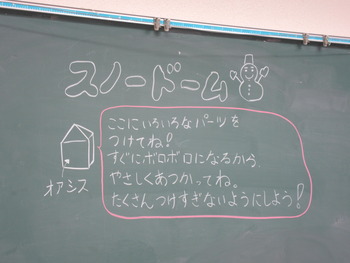 スノードーム
ここにいろいろなパーツを
つけてね!
すぐにボロボロになるから、
やさしくあつかってね。
たくさんつけすぎないようにしよう!
オアシス